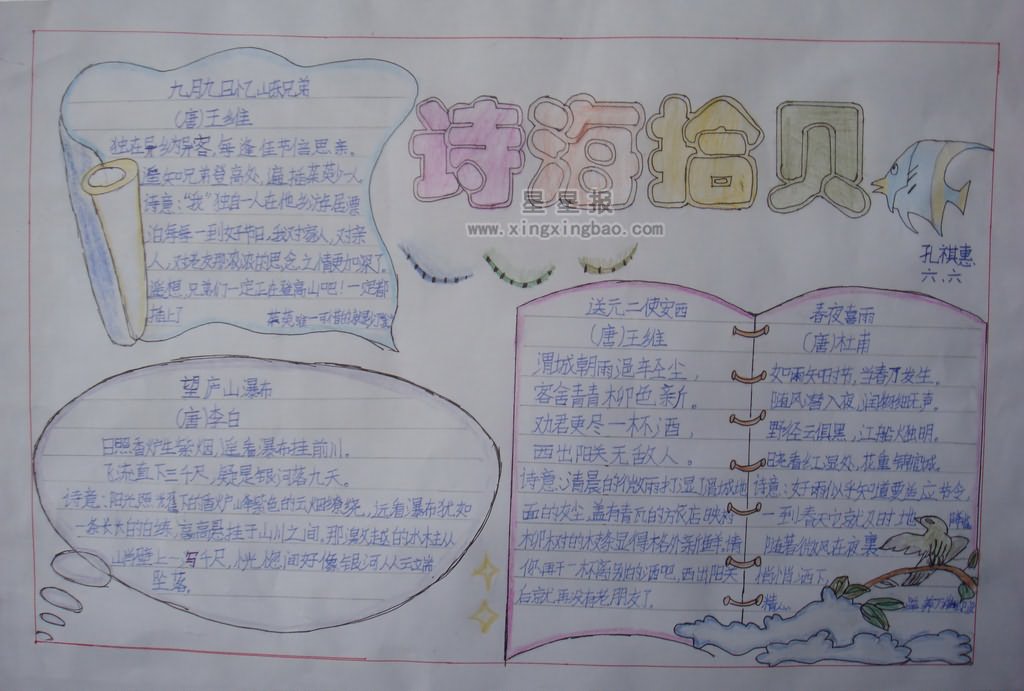 诗海拾贝
星星报
www.xingxingbao.com
孔祺惠
六、六
九月九日忆山东兄弟
(唐)王维
独在异乡为异客,每逢佳节倍思亲。
遥知兄弟登高处,遍插茱萸少一人
诗意:"我"独自一人在他乡游居漂
泊每每一到好节日,我对家人,对亲
人,对老友那浓浓的思念之情更加深了。
遥想,兄弟们一定正在登高山吧!一定都
插上了
茱萸唯一可惜的是
望庐山瀑布
(唐)李白
日照香炉生紫烟,遥看瀑布挂前川。
飞流直下三千尺,疑是银河落九天。
诗意:阳光照耀下的香炉山峰紫色的云烟缭绕,远看瀑布犹如
一条长长的白练,高高悬挂于山川之间,那激越的水柱从
山崖壁上一泻千尺,恍惚间好像银河从云端
坠落。
送元二使安西
(唐)王维
渭城朝雨浥轻尘,
客舍青青柳色新。
劝君更尽一杯酒,
西出阳关无敌人。
诗意:清晨的微微雨打湿了渭城地
面的灰尘,盖有青瓦的方夜店映衬
柳树的枝条显得格外新鲜。请
你再干一杯离别的酒吧,西出阳关
后就再没有老朋友了。
春夜喜雨
(唐)杜甫
如雨知时节,当春乃发生。
随风潜入夜,润物细无声。
野径云俱黑,江船火独明。
晓看红湿处,花重锦官城。
诗意:好雨似乎知道要盖应节令
一到春天它就及时地
随着微风在夜裏
悄悄洒下,